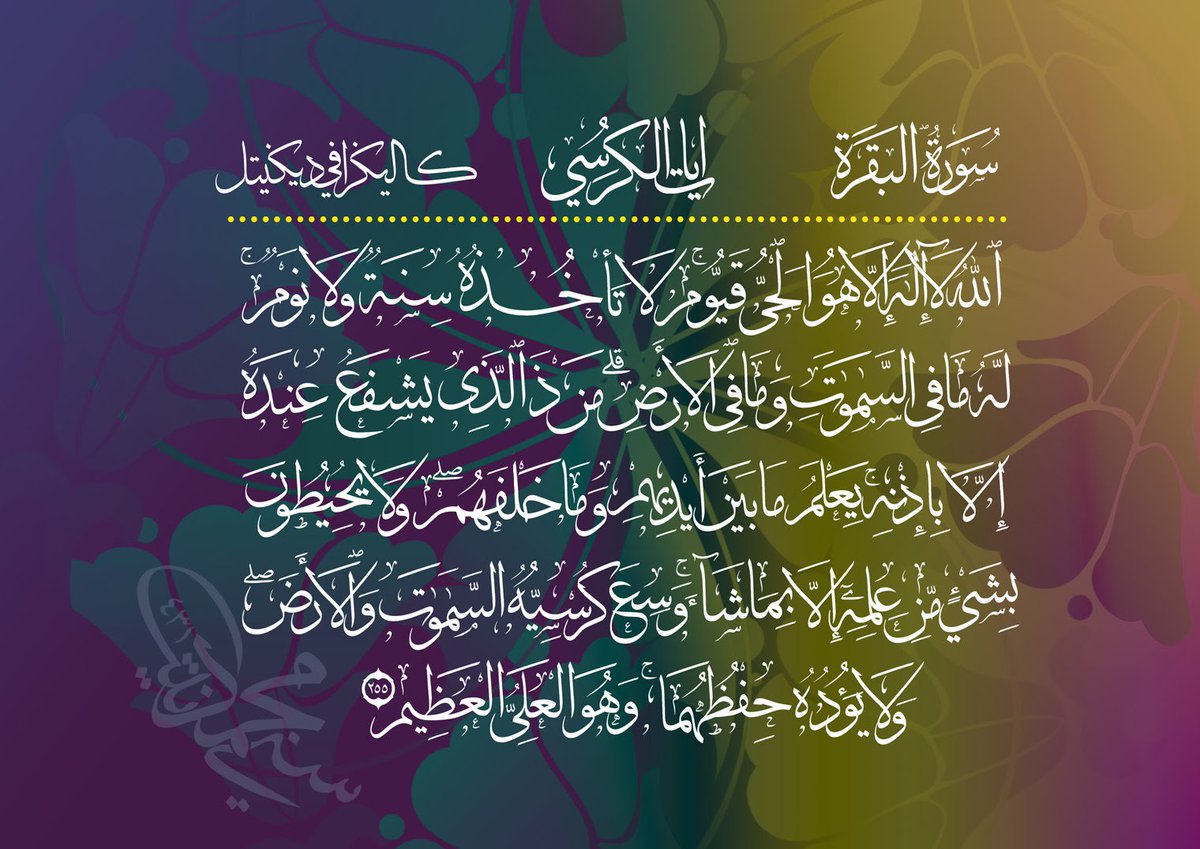 سُورَةُ البَقَرَة ايات الكرسي كاليكرافي ديكيتل
ٱللَّهُ لَآ إِلَٰهَ إِلَّا هُوَ ٱلحَيُّ قَيُّومُ ۚ لَا تَأخُذُهُ سِنَةٌ وَلَا نَومٌ
لَهُ مَا فِي السَّمَوَتِ وَمَا فِي ٱلأَرضِ ۗ مَن ذَا ٱلَّذِي يَشفَعُ عِندَهُ
إِلَّا بِإِذنِهِ ۚ يَعلَمُ مَا بَينَ أَيدِيهِم وَمَا خَلفَهُم ۖ وَلَا يُحِيطُونَ
بِشَيءٍ مِّن عِلمِهِ إِلَّا بِمَا شَآءَ ۚ وَسِعَ كُرسِيُّهُ السَّمَوَتِ وَٱلأَرضَ ۖ
وَلَا يَؤُدُهُ حِفظُهُمَا ۚ وَهُوَ العَلِيُّ العَظِيمُ ٢٥٥